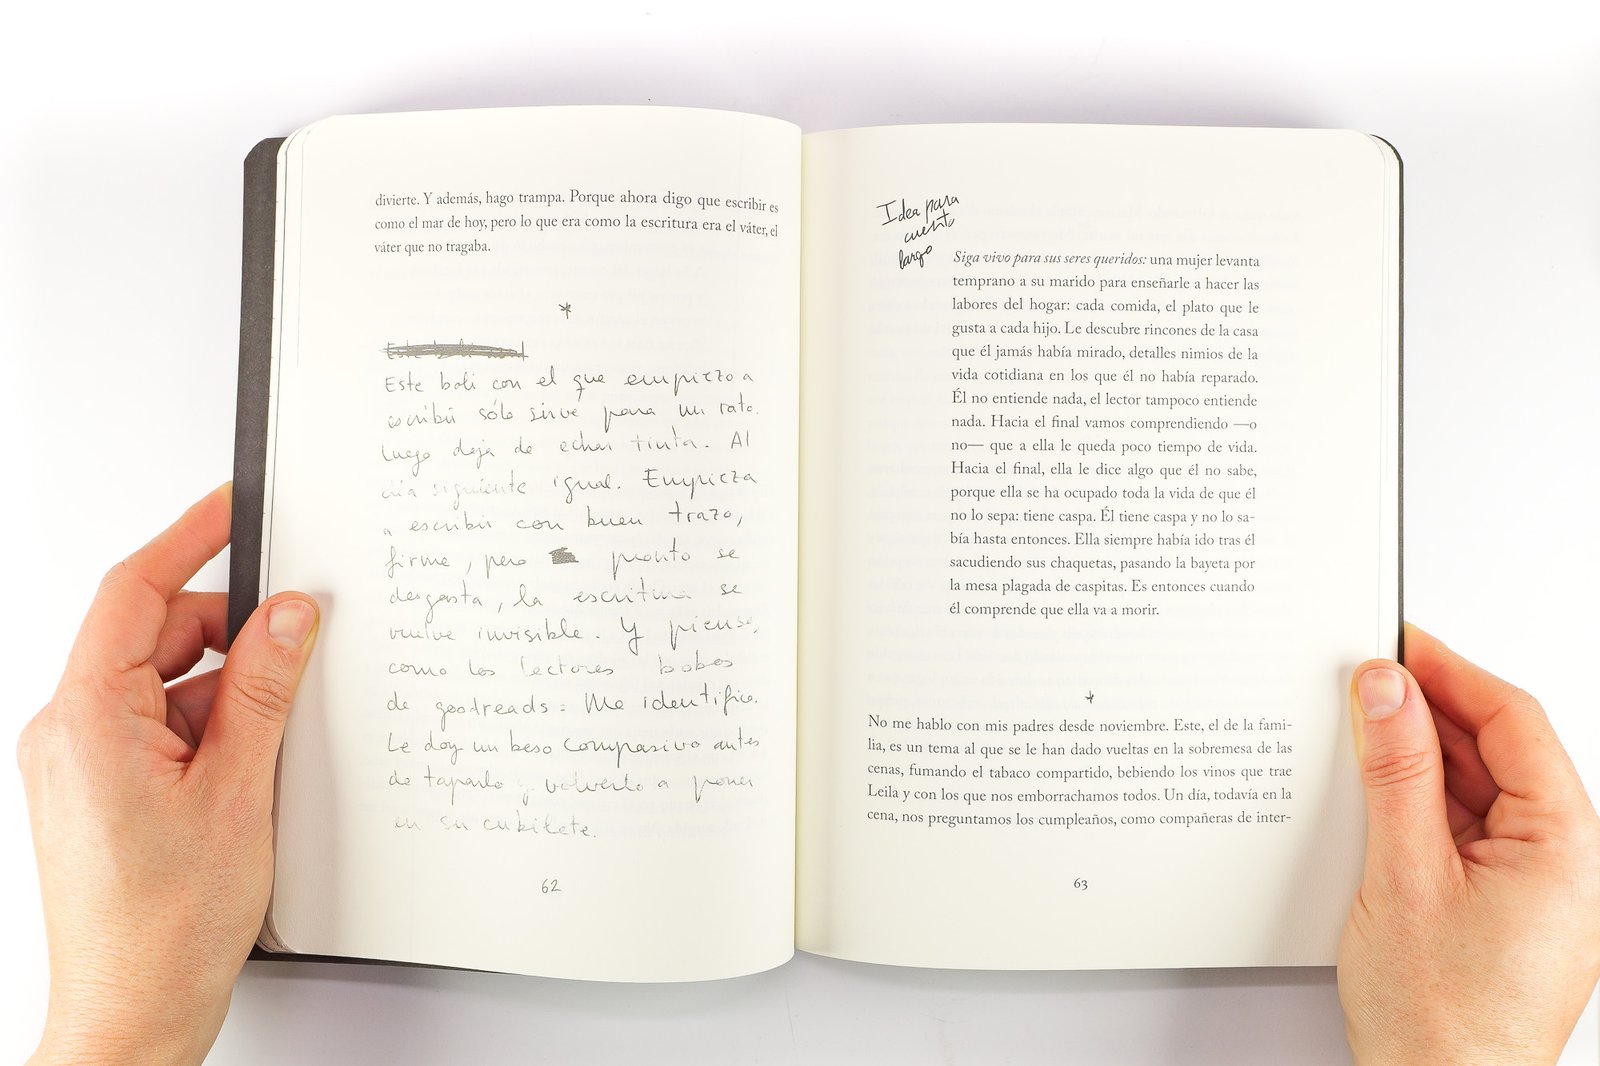 divierte. Y además, hago trampa. Porque ahora digo que escribir es
como el mar de hoy, pero lo que era como la escritura era el váter, el
váter que no tragaba.
*
Este boli con el que empiezo a
escribir sólo sirve para un rato.
Luego deja de echar tinta. Al
día siguiente igual. Empieza
a escribir con buen trazo,
firme, pero pronto se
desgasta, la escritura se
vuelve invisible. Y pienso,
como los lectores bobos
de goodreads: Me identifico.
Le doy un beso compasivo antes
de taparlo y volverlo a poner
en su cubilete.
62
Idea para
cuento
largo
Siga vivo para sus seres queridos: una mujer levanta
temprano a su marido para enseñarle a hacer las
labores del hogar: cada comida, el plato que le
gusta a cada hijo. Le descubre rincones de la casa
que él jamás había mirado, detalles nimios de la
vida cotidiana en los que él no había reparado.
Él no entiende nada, el lector tampoco entiende
nada. Hacia el final vamos comprendiendo —o
no— que a ella le queda poco tiempo de vida.
Hacia el final, ella le dice algo que él no sabe,
porque ella se ha ocupado toda la vida de que él
no lo sepa: tiene caspa. Él tiene caspa y no lo sa-
bía hasta entonces. Ella siempre había ido tras él
sacudiendo sus chaquetas, pasando la bayeta por
la mesa plagada de caspitas. Es entonces cuando
él comprende que ella va a morir.
*
No me hablo con mis padres desde noviembre. Este, el de la fami-
lia, es un tema al que se le han dado vueltas en la sobremesa de las
cenas, fumando el tabaco compartido, bebiendo los vinos que trae
Leila y con los que nos emborrachamos todos. Un día, todavía en la
cena, nos preguntamos los cumpleaños, como compañeras de inter-
63